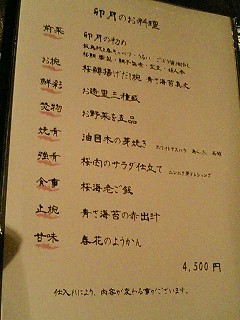 卯月のお料理
前菜 卯月の初め
お椀 桜鱒揚げだし椀 青さ海苔真丈
鮮彩 お造里三種盛
焚物 お野菜を五品
焼肴 油目木の芽焼き
ホワイトアスパラ
強肴 桜肉のサラダ仕立て
食事 桜海老ご飯
止椀 青さ海苔の赤出汁
甘味 春花のようかん
4,500円
仕入れにより、内容が変わる事がございます。